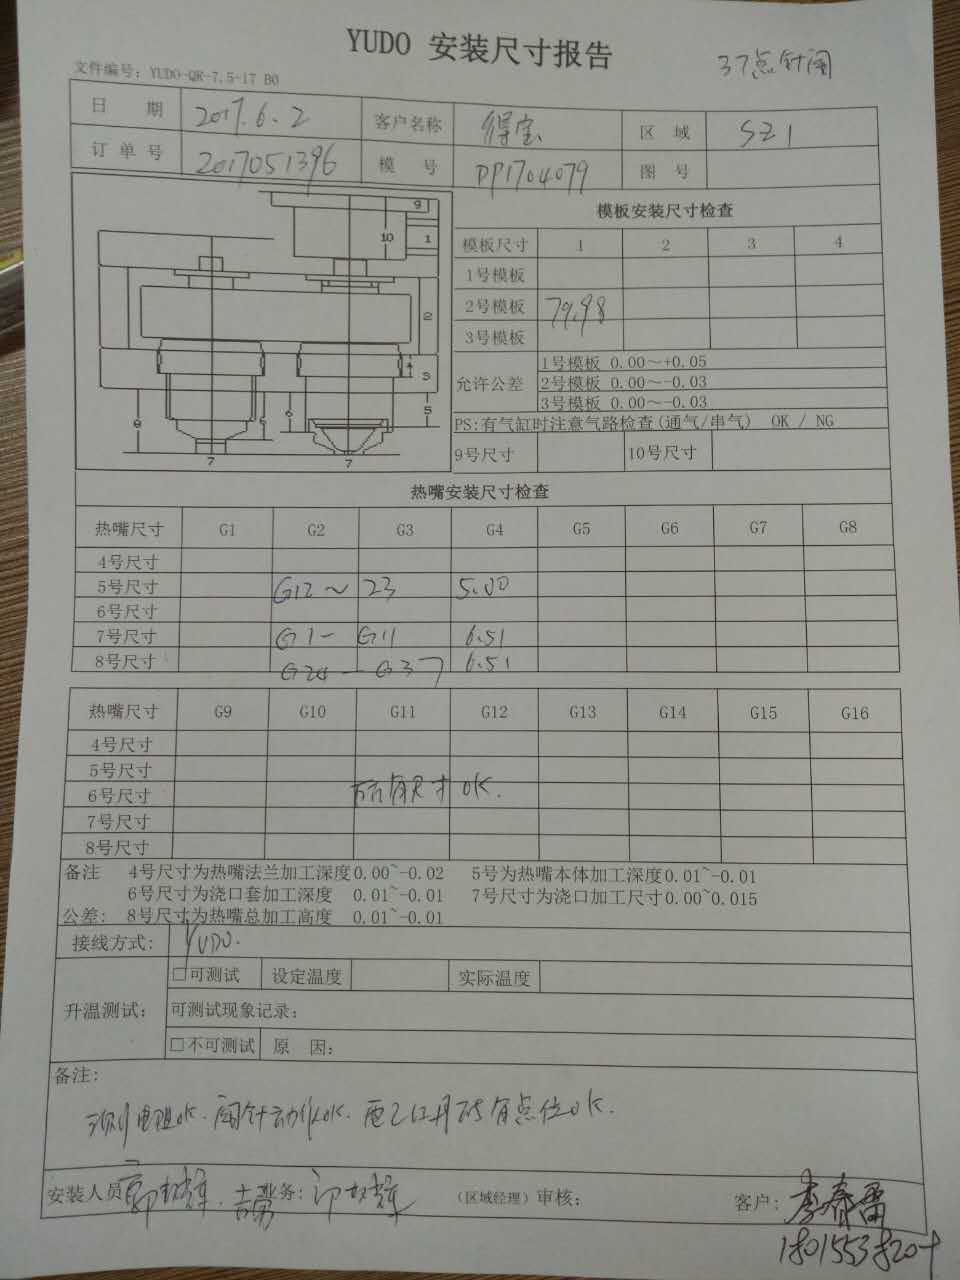 YUDO 安装尺寸报告
37点针阀
文件编号: YUDO-QR-7.5-17 B0
日 期 2017.6.2 客户名称 得宝 区 域 SZ1
订单号 2017051396 模 号 DP1704079 图 号
9
10 1
2
4 3
5
8 6 6
7 7
模板安装尺寸检查
模板尺寸 1 2 3 4
1号模板
2号模板 79.98
3号模板
允许公差
1号模板 0.00～+0.05
2号模板 0.00～-0.03
3号模板 0.00～-0.03
PS:有气缸时注意气路检查(通气/串气) OK / NG
9号尺寸 10号尺寸
热嘴安装尺寸检查
热嘴尺寸 G1 G2 G3 G4 G5 G6 G7 G8
4号尺寸
5号尺寸 G12～ 23 5.00
6号尺寸
7号尺寸 G1- G11 6.51
8号尺寸 G24 — G37 6.51
热嘴尺寸 G9 G10 G11 G12 G13 G14 G15 G16
4号尺寸
5号尺寸
6号尺寸 所有尺寸 OK.
7号尺寸
8号尺寸
备注 4号尺寸为热嘴法兰加工深度0.00~-0.02 5号为热嘴本体加工深度0.01~-0.01
6号尺寸为浇口套加工深度 0.01~-0.01 7号尺寸为浇口加工尺寸0.00~0.015
公差: 8号尺寸为热嘴总加工高度 0.01~-0.01
接线方式: YUDO.
升温测试:
□可测试 设定温度 实际温度
可测试现象记录:
□不可测试 原 因:
备注:
测电阻OK. 阀针动作OK. 所有点位OK.
安装人员 业务: (区域经理) 审核: 客户: 李春雷